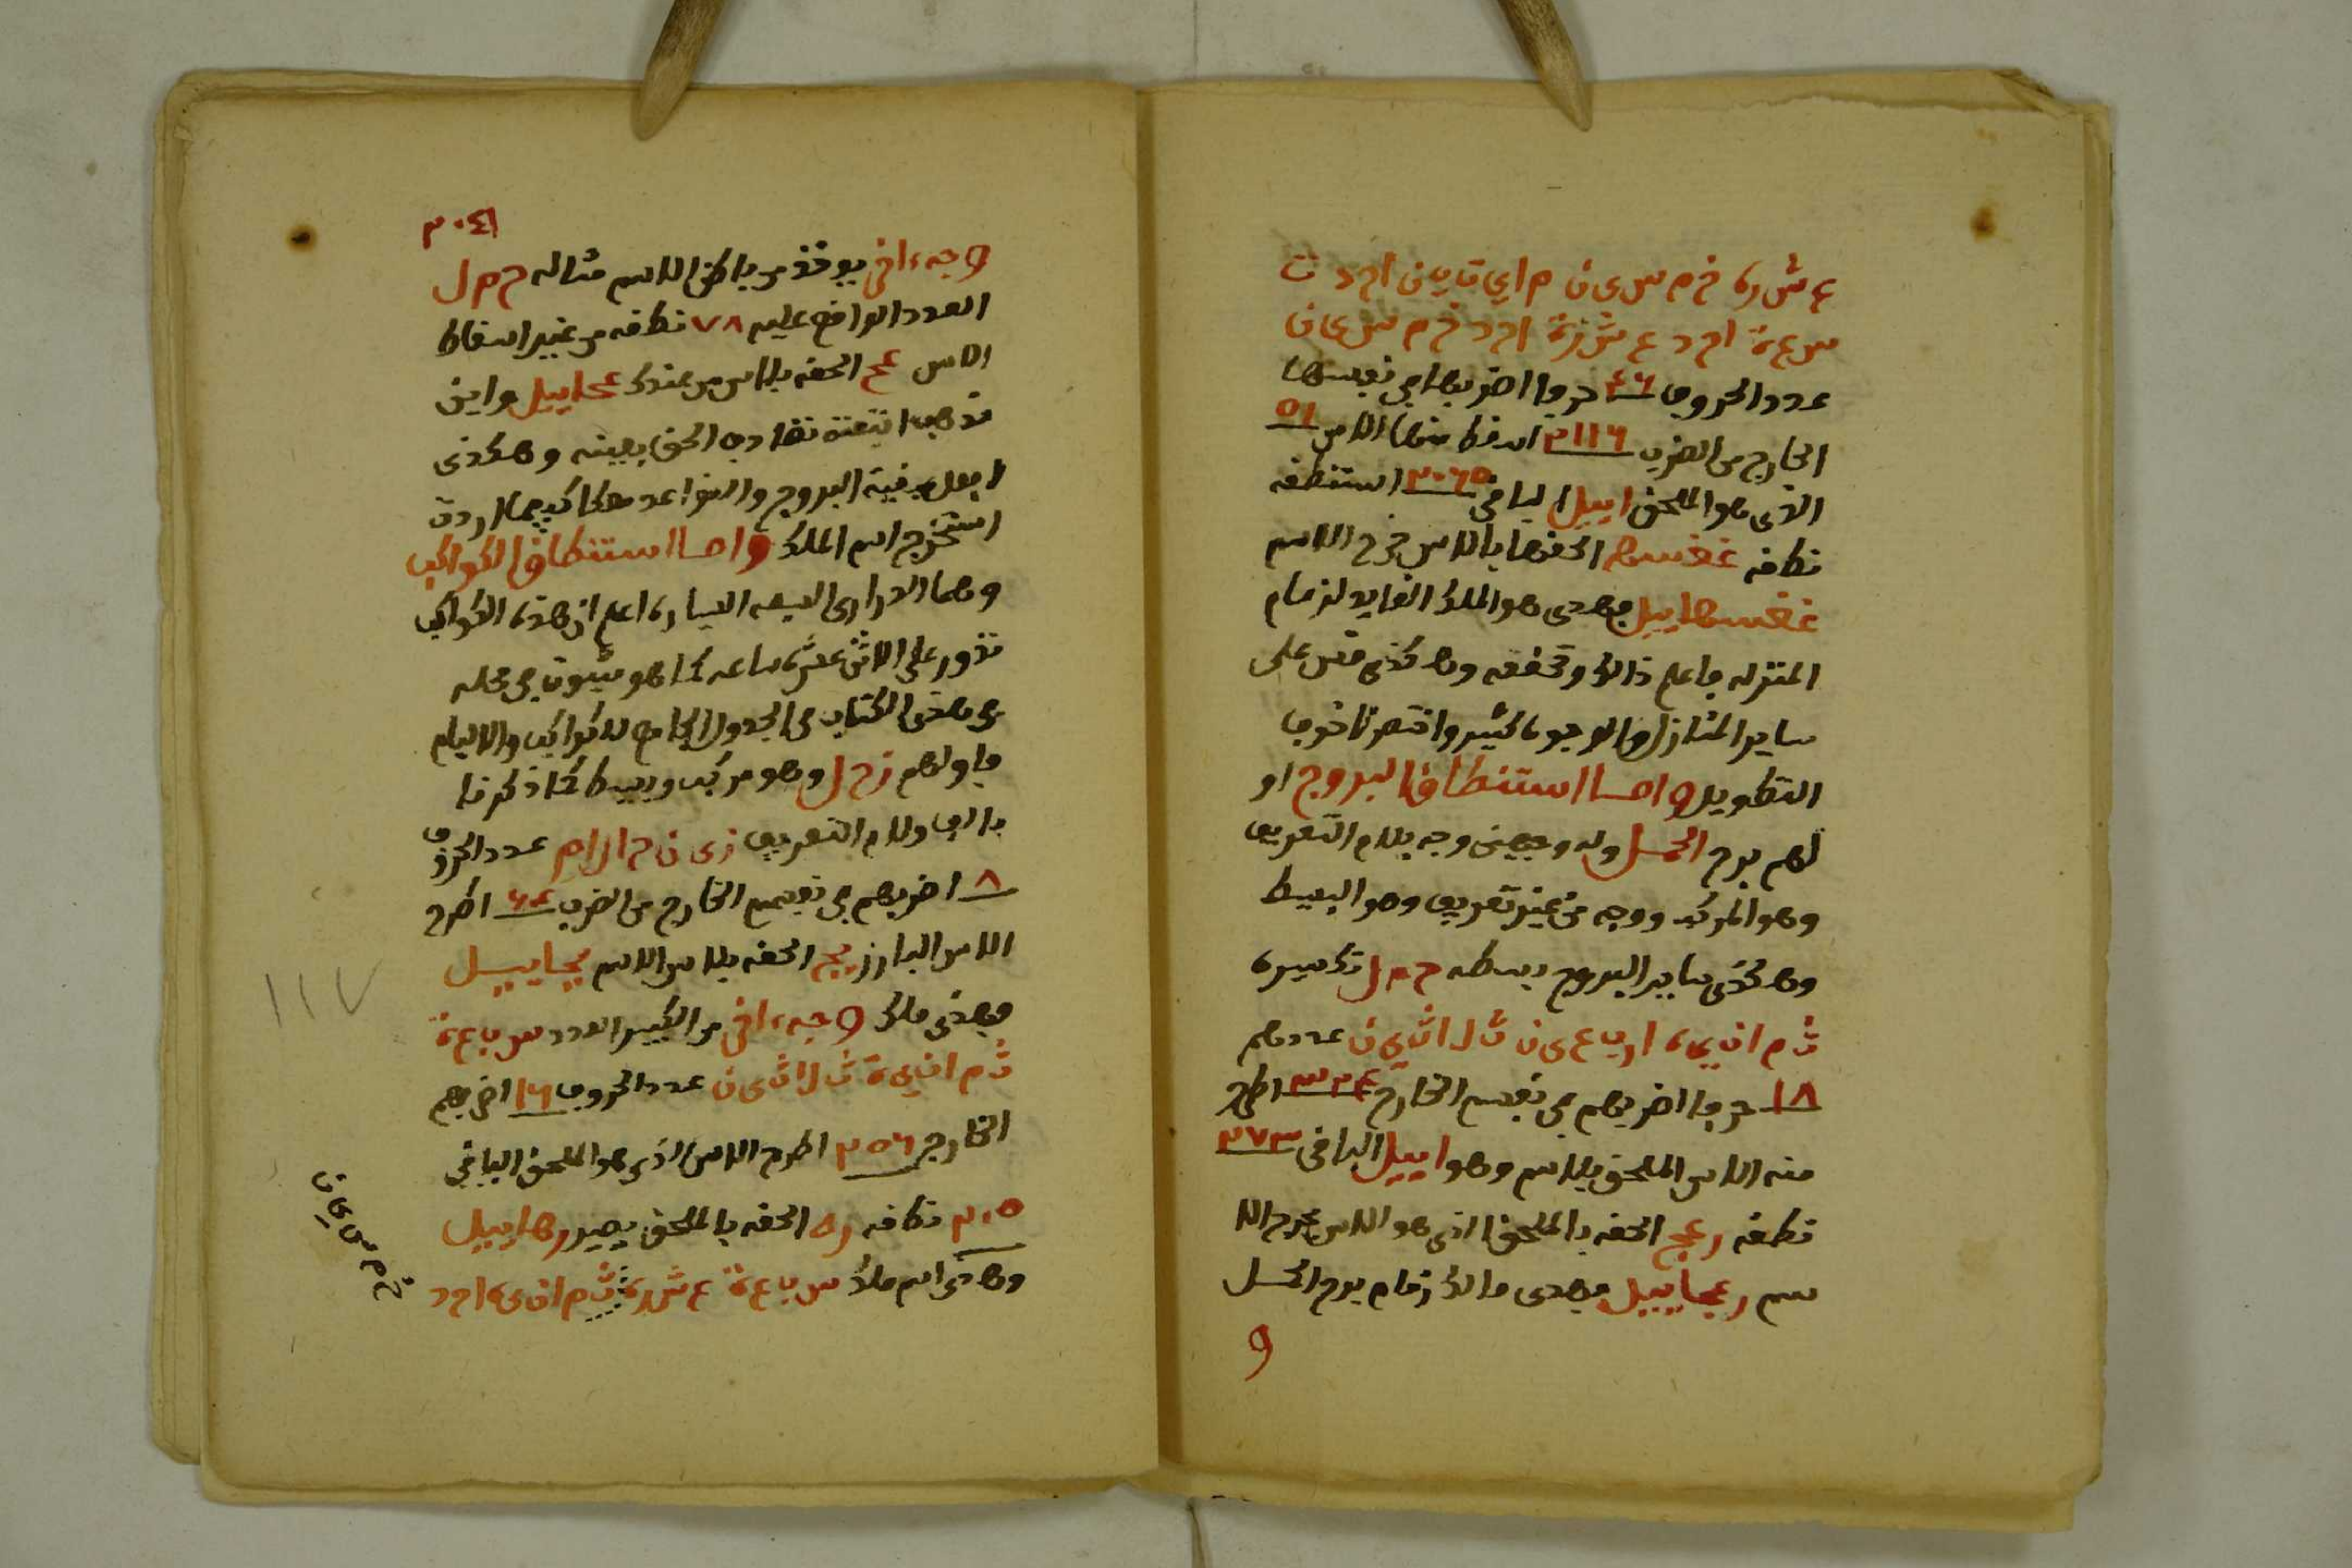 ع ش ر ة خ م س ى ن م ا ي ت ي ن ا ح د ت
س ع ة ا ح د ع ش ر ة ا ح د خ م س ى ن
عدد الحروف ٤٦ حرفا اضربها في نفسها
الخارج من الضرب ٢١١٦ اسقط منها الاس ٥١
الذى هو الملحق اييل الباقى ٢٠٦٥ استنطقه
نطاقه غغسه الحقها بالاس خرج الاسم
غغسهاييل فهدى هو الملك القايد لزمام
المنزله فاعلم ذالك وتحققه وهكذى قس على
ساير المنازل والوجوه كثير واختصرنا خوف
التطويل واما استنطاق البروج او
لهم برج الحمل وله وجهين وجه بلام التعريف
وهو المركب ووجه من غير تعريف وهو البسيط
وهكذى ساير البروج بسطه ح م ل تكسيره
ث م ا ن ي ه ا ر ب ا ع ى ن ث ل ا ث ي ن عددهم
١٨ حرفا اضربهم فى نفسهم الخارج ٣٢٤ اطرح
منه الاس الملحق بالاسم وهو اييل الباقى ٢٧٣
نطقه رعج الحقه بالملحق الذى هو الاس خرج الا
سم رعجاييل فهدى مالك زمام برج الحمل
و
٣٠٤١
وجه اخر يوخذ من باطن الاسم مثاله ح م ل
العدد الواقع عليه ٧٨ نطقه من غير اسقاط
الاس عح الحقه بالاس من عندك عحاييل واين
تذهب انتهت تصاريف الحق بعينه وهكذى
افعل ببقية البروج والقواعد هكا كيفما اردت
استخرج اسم الملك واما استنطاق الكواكب
وهما الدرارى السبعه السياره اعلم ان هذه الكواكب
تدور على الاثنى عشر ساعه كما هو مثبوت فى محله
من هذى الكتاب فى الجدول الجامع للكواكب والايام
فاولهم زحل وهو مركب وبسيط كما ذكرنا
بالف ولام التعريف ز ى ن ح ا ل ا م عدد الحروف
٨ اضربهم فى نفسهم الخارج من الضرب ٦٤ اطرح
الاس البارز يج الحقه بالاس الاسم يجاييل
فهذى ملك وجه اخر من الكبير العدد س ب ا ع ة
ث م ا ن ي ة ث ل ا ث ى ن عدد الحروف ١٦ اضربهم
الخارج ٢٥٦ اطرح الاس الذى هو الملحق الباقى
٢٠٥ نطاقه ره الحقه بالملحق يصير رهاييل
وهدى اسم ملك س ب ا ع ة ع ش ر ة ث م ا ن ى ه ا ح د
خ م س ى ن
١١٧